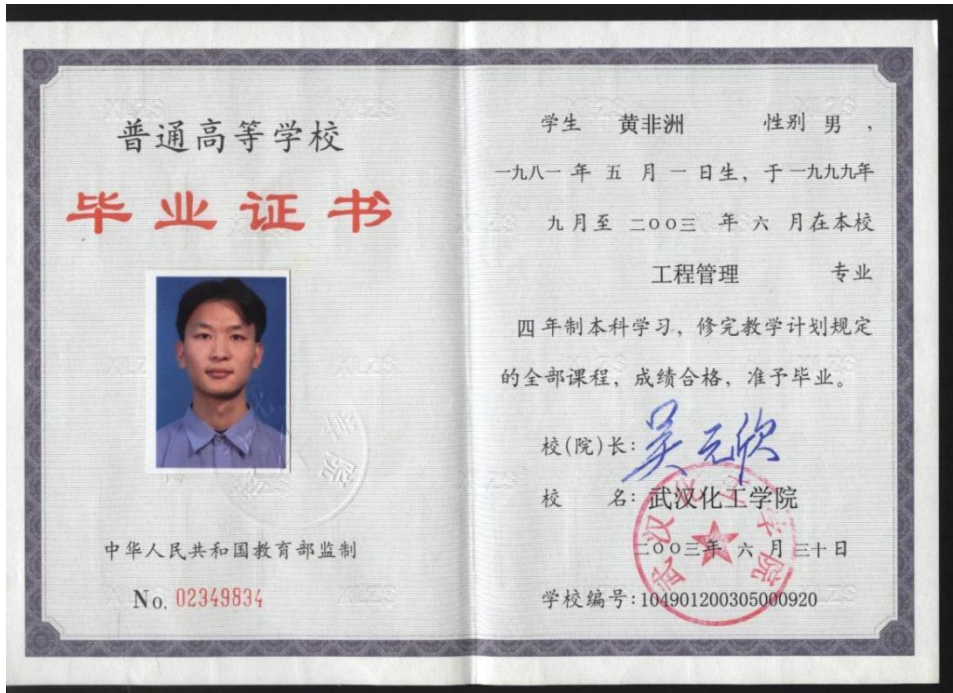 普通高等学校
毕业证书
中华人民共和国教育部监制
No. 02349834
学生 黄非洲 性别 男 ，
一九八一 年 五 月 一 日生，于 一九九九年
九 月至 二〇〇三 年 六 月在本校
工程管理 专业
四 年制本科学习，修完教学计划规定
的全部课程，成绩合格，准予毕业。
校(院)长：吴元欣
校 名：武汉化工学院
二〇〇三年 六 月 三十 日
学校编号：104901200305000920
武汉化工学院